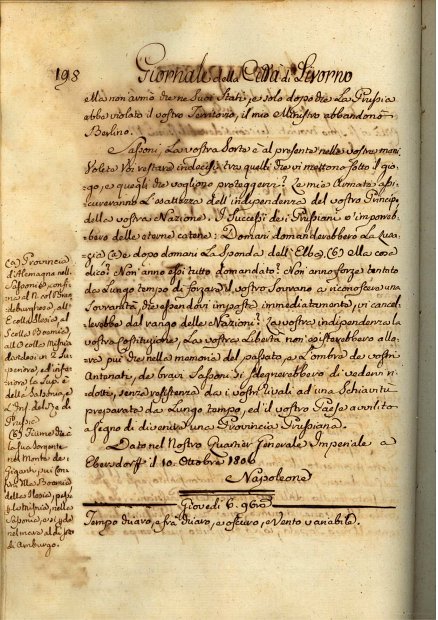 198 Giornale della Città di Livorno
ella non armò che ne suoi Stati, e solo dopo che La Prussia
abbe violato il vostro Territorio, il mio Ministro abbandonò
Berlino.
Sassoni, La vostra Sorte è al presente nelle vostre mani
Volete Voi restare indecisi tra quelli che vi mettono sotto il gio-
go, e quegli che vogliono proteggervi? Le mie Armate assi-
cureranno L'esattezza dell'independenza del vostro Principe
della vostra Nazione. I Successi dei Prussiani v'imporreb-
bero delle eterne catene: Domani domanderebbero La Lusa-
zia (a) e dopo domani La Sponda dell'Elba. (b) Ma cosa
dico? Non anno essi tutto domandato? Non anno forse tentato
da Lungo tempo di forzare il vostro Sovrano a riconoscere una
Sovranità che essendovi imposta immediatamente, vi cancel-
lerebbe dal rango delle Nazioni? La vostra independenza la
vostra Costituzione, La vostra Libertà non esisterebbero allora
più che nella memoria del passato, e L'ombre de vostri
Antenati, de bravi Sassoni si sdegnerebbero di vedervi ri-
dotti, senza resistenza da i vostri rivali ad una Schiavitù
preparata da Lungo tempo, ed il vostro Paese avvilito
a segno di divenire una Provincia Prussiana.
Dato nel Nostro Quartier Generale Imperiale a
Ebersdorff il 10. Ottobre 1806
Napoleone
Giovedì 6. 9bre
Tempo chiaro, e fra chiaro, e oscuro, e Vento variabile.
(a) Provincia
d'Alemagna nell
Sassonia, confi-
na al N. col Bran-
deburghese, all'
E colla Slesia, al
S colla Boemia,
all'O colla Misnia
divide si in 2. Su-
periore, ed infe-
riore la Sup. è
della Sassonia, e
L'Inf. del Re di
Prussia
(b) Fiume che à
la sua sorgente
nel Monte de
Giganti, sui con-
fini della Boemia
della Slesia,
la Misnia, nella
Sassonia, e si
nel mare al di
di Amburgo.